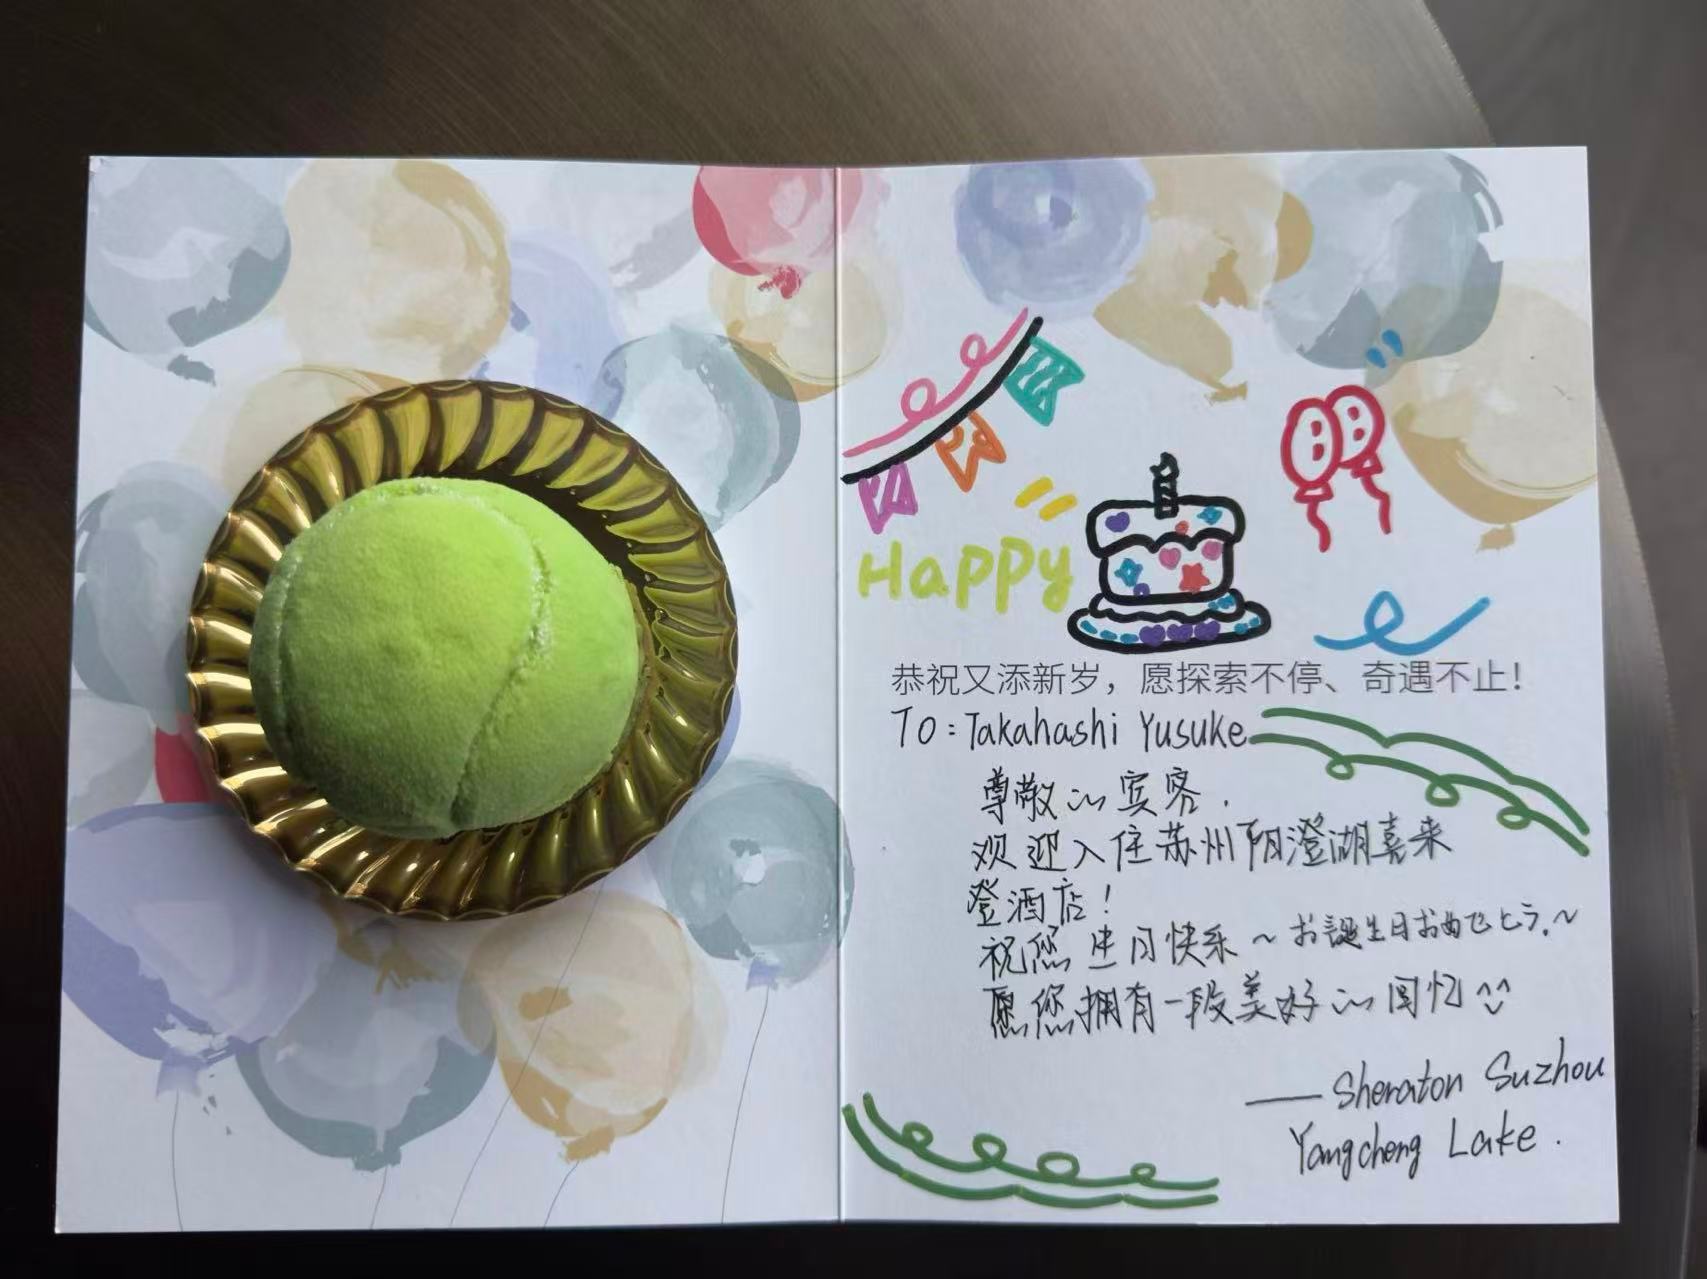 Happy
恭祝又添新岁，愿探索不停、奇遇不止！
To：Takahashi Yusuke
尊敬的宾客.
欢迎入住苏州阳澄湖喜来
登酒店！
祝您生日快乐～お誕生日お
愿您拥有一段美好的回忆^^
——Sheraton Suzhou
Yangcheng Lake.